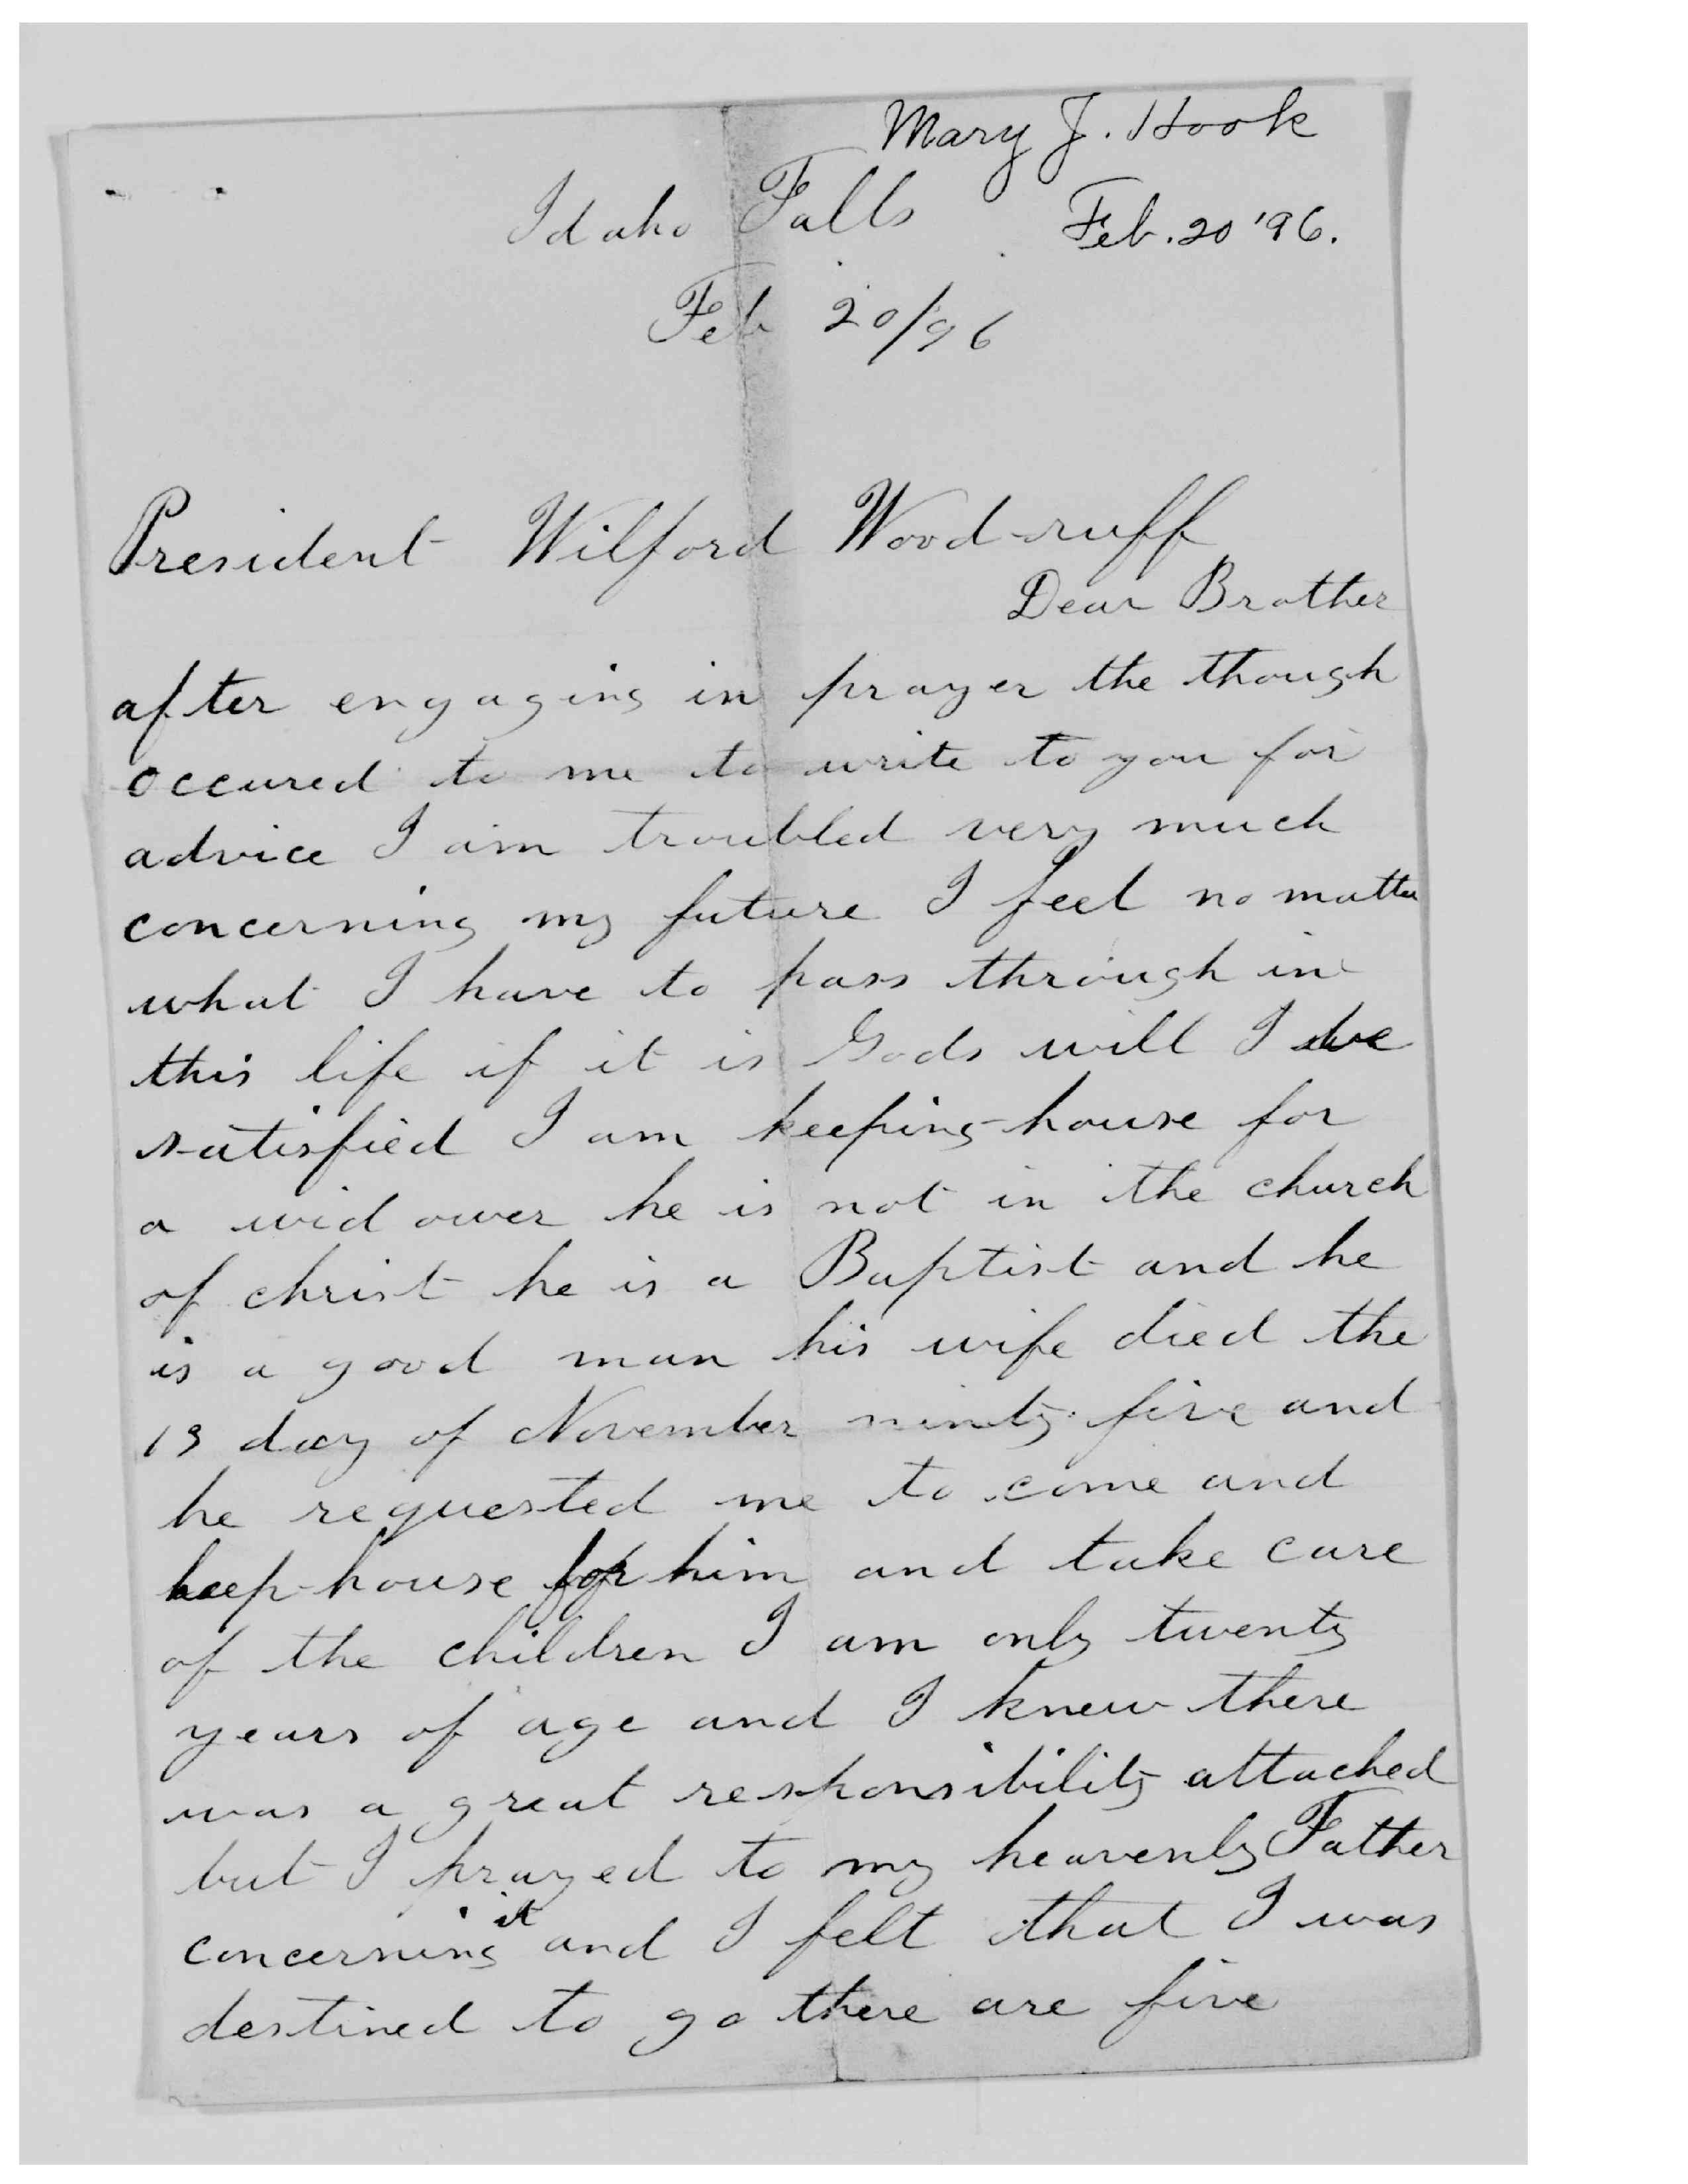 Mary J. Hook
Idaho Falls
Feb. 20 '96.
Feb 20/96
President Wilford Woodruff
Dear Brother
after engaging in prayer the though
occured to me to write to you for
advice I am troubled very much
concerning my future I feel no matter
what I have to pass through in
this life if it is Gods will I be
satisfied I am keeping house for
a widower he is not in the church
of christ he is a Baptist and he
is a good man his wife died the
13 day of November ninty five and
he requested me to come and
keep house for him and take care
of the children I am only twenty
years of age and I knew there
was a great responsibility attached
but I prayed to my heavenly Father
concerning it and I felt that I was
destined to go there are five